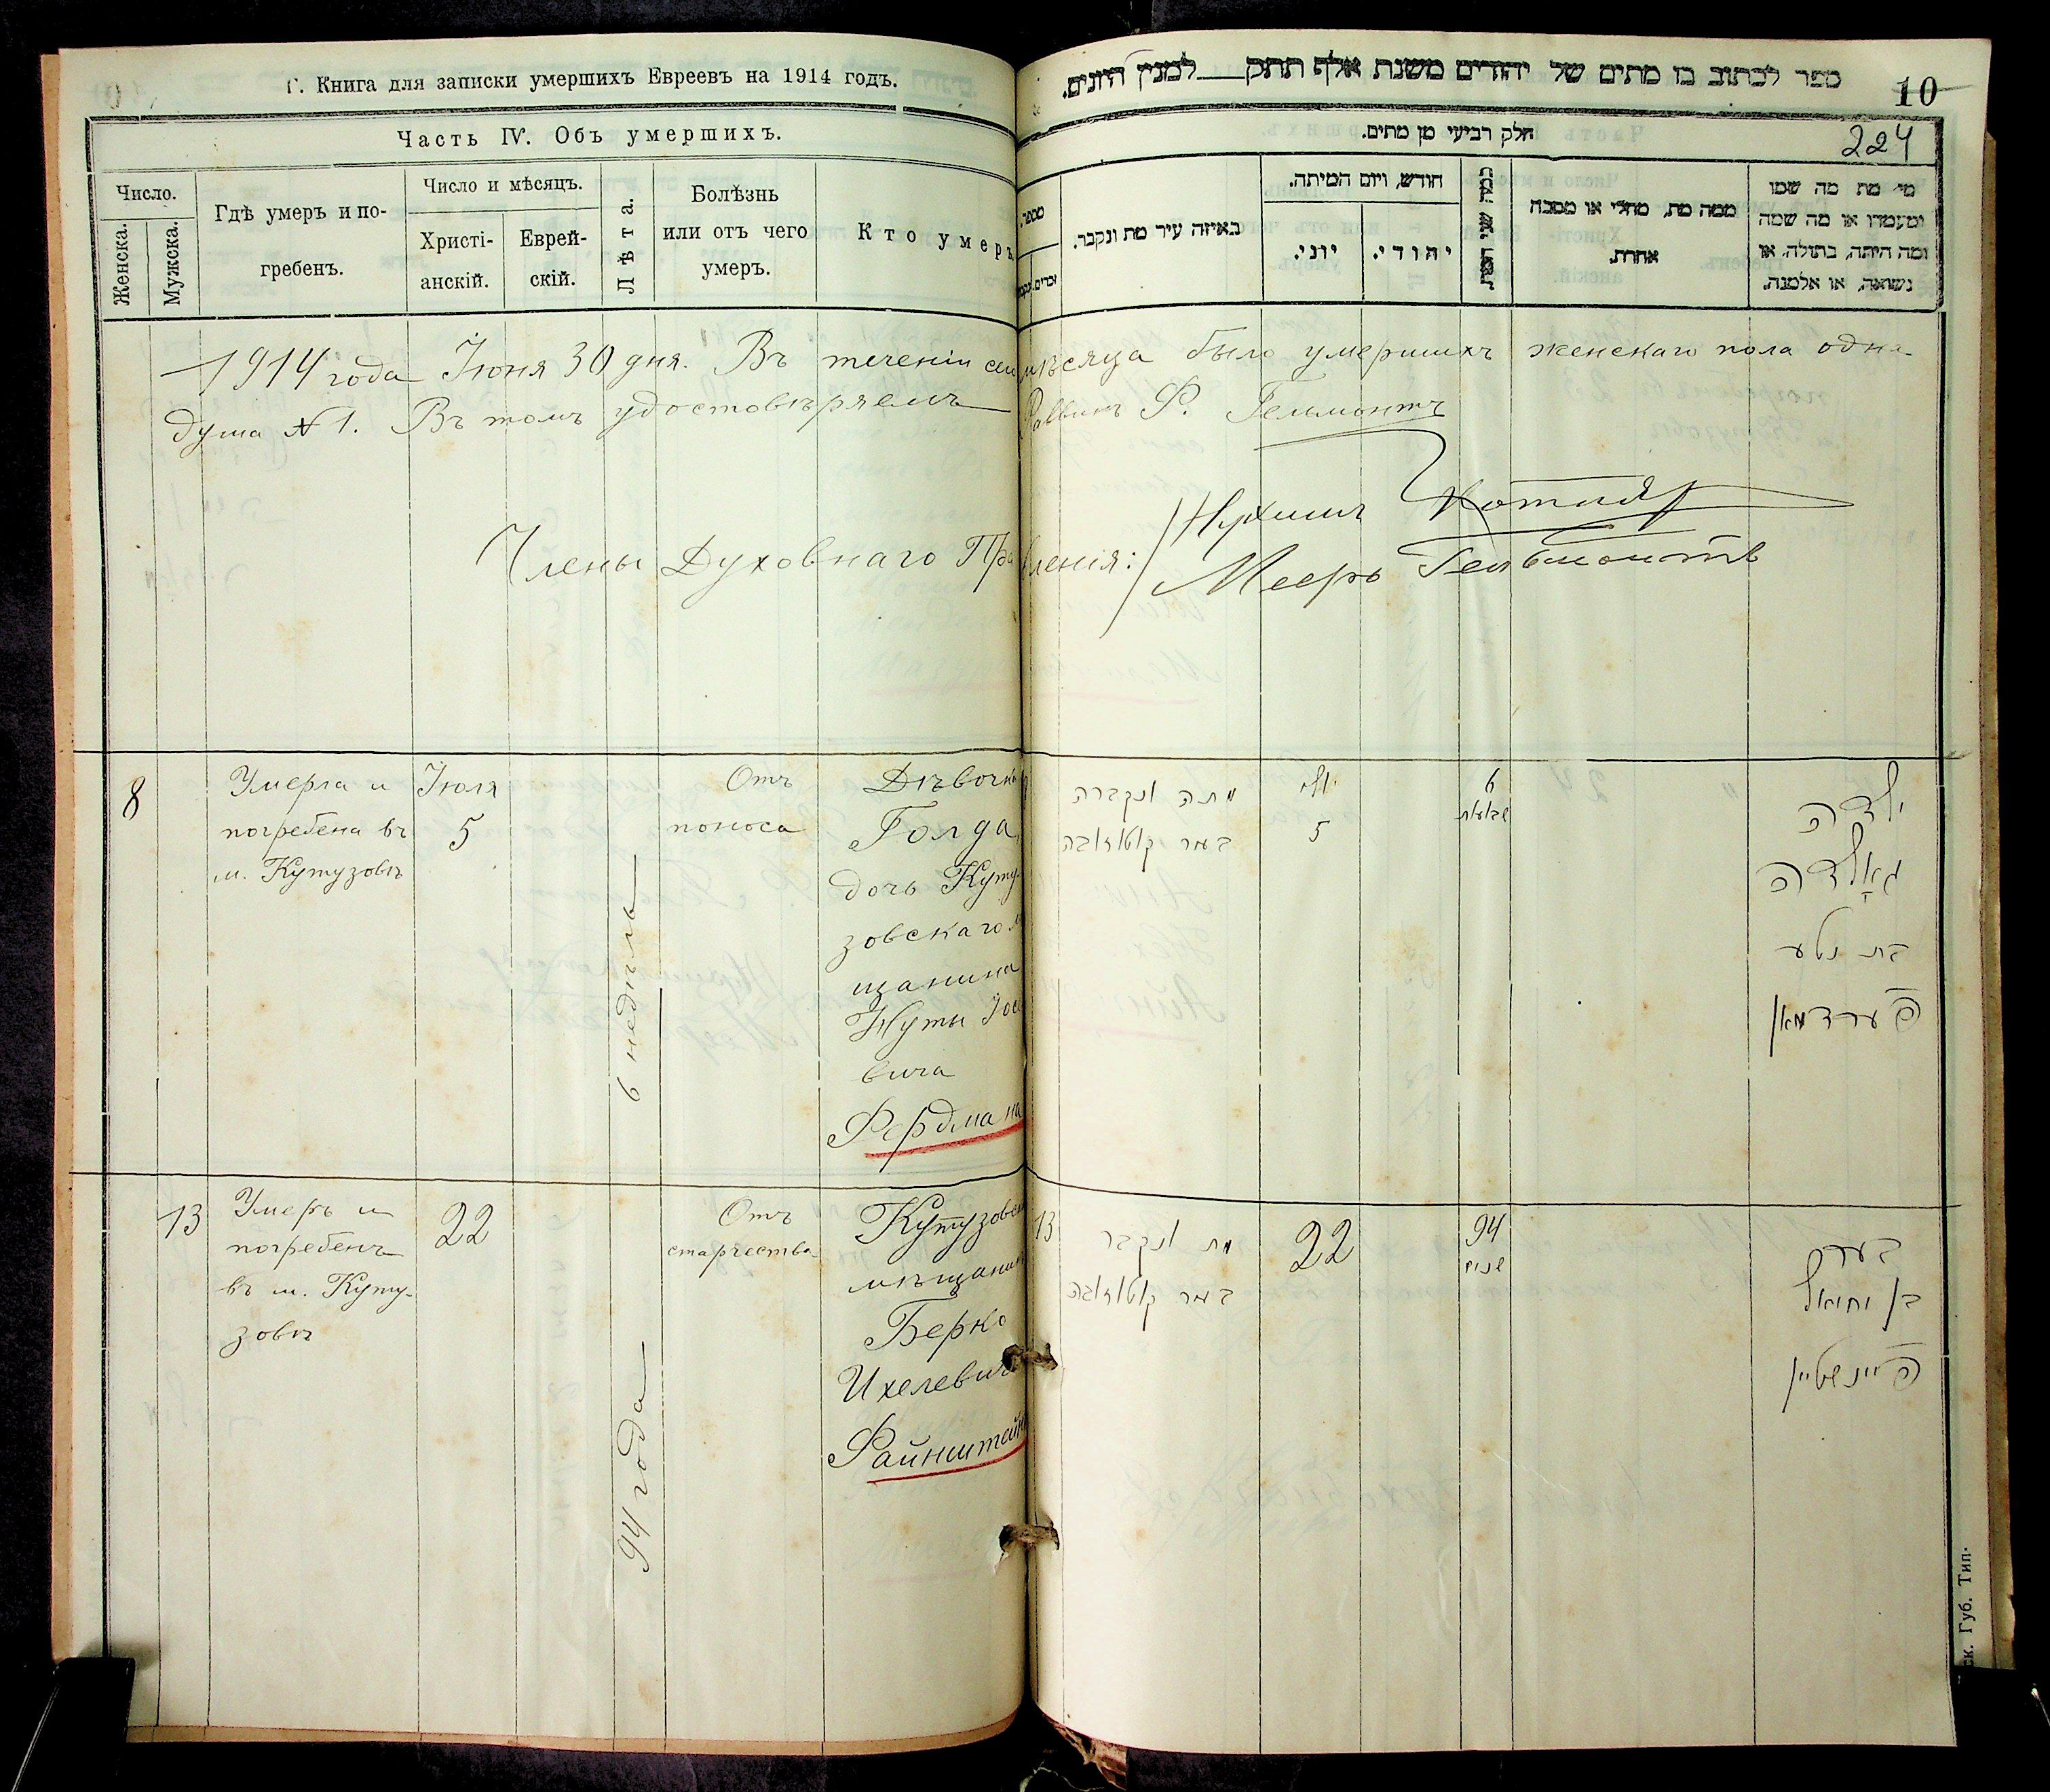 Г. Книга для записки умершихъ Евреевъ на 1914 годъ.
Часть IV. Объ умершихъ.
Число.
Женска.
Мужска.
Гдѣ умеръ и по-
гребенъ.
Число и мѣсяцъ.
Христі-
анскій.
Еврей-
скій.
Лѣта.
Болѣзнь
или отъ чего
умеръ.
Кто умеръ
ספר לכתוב בו מתים של יהודים משנת אלף תתק למנין היונים.
10
חלק רביעי מן מתים.
224
מספר.
באיזה עיר מת ונקבר.
חודש, ויום המיתה.
יוני.
יהודי.
כמה שני המת.
ממה מת, מחלי או מסבה
אחרת.
מי מת מה שמו
ומעמדו או מה שמה
ומה היתה, בתולה, או
נשואה, או אלמנה.
1914 года Іюня 30 дня. Въ теченіи сего мѣсяца было умершихъ женскаго пола одна
душа №1. Въ томъ удостовѣряемъ Раввинъ Ф. Гельмонтъ
Члены Духовнаго Правленія:
Мееръ Гельмонтъ
8
Умерла и
погребена въ
м. Кутузовѣ
Іюля
5
6 недѣль
Отъ
поноса
Дѣвочка
Голда,
дочь Куту-
зовскаго м
щанина
Нуты Іос
вича
Фердмана
מתה ונקברה
בעיר קוטוזובה
יולי
5
6
שבועות
ילדה
גאָלדה
בת נטע
פערדמאן
13
Умеръ и
погребенъ
въ м. Куту-
зовѣ
22
94 года
Отъ
старчества
Кутузовск
мѣщанинъ
Берко
Ихелевичъ
Файнштейнъ
13
מת ונקבר
בעיר קוטוזובה
22
94
שנים
בערק
בן יחיאל
פיינשטיין
ск. Губ. Тип.